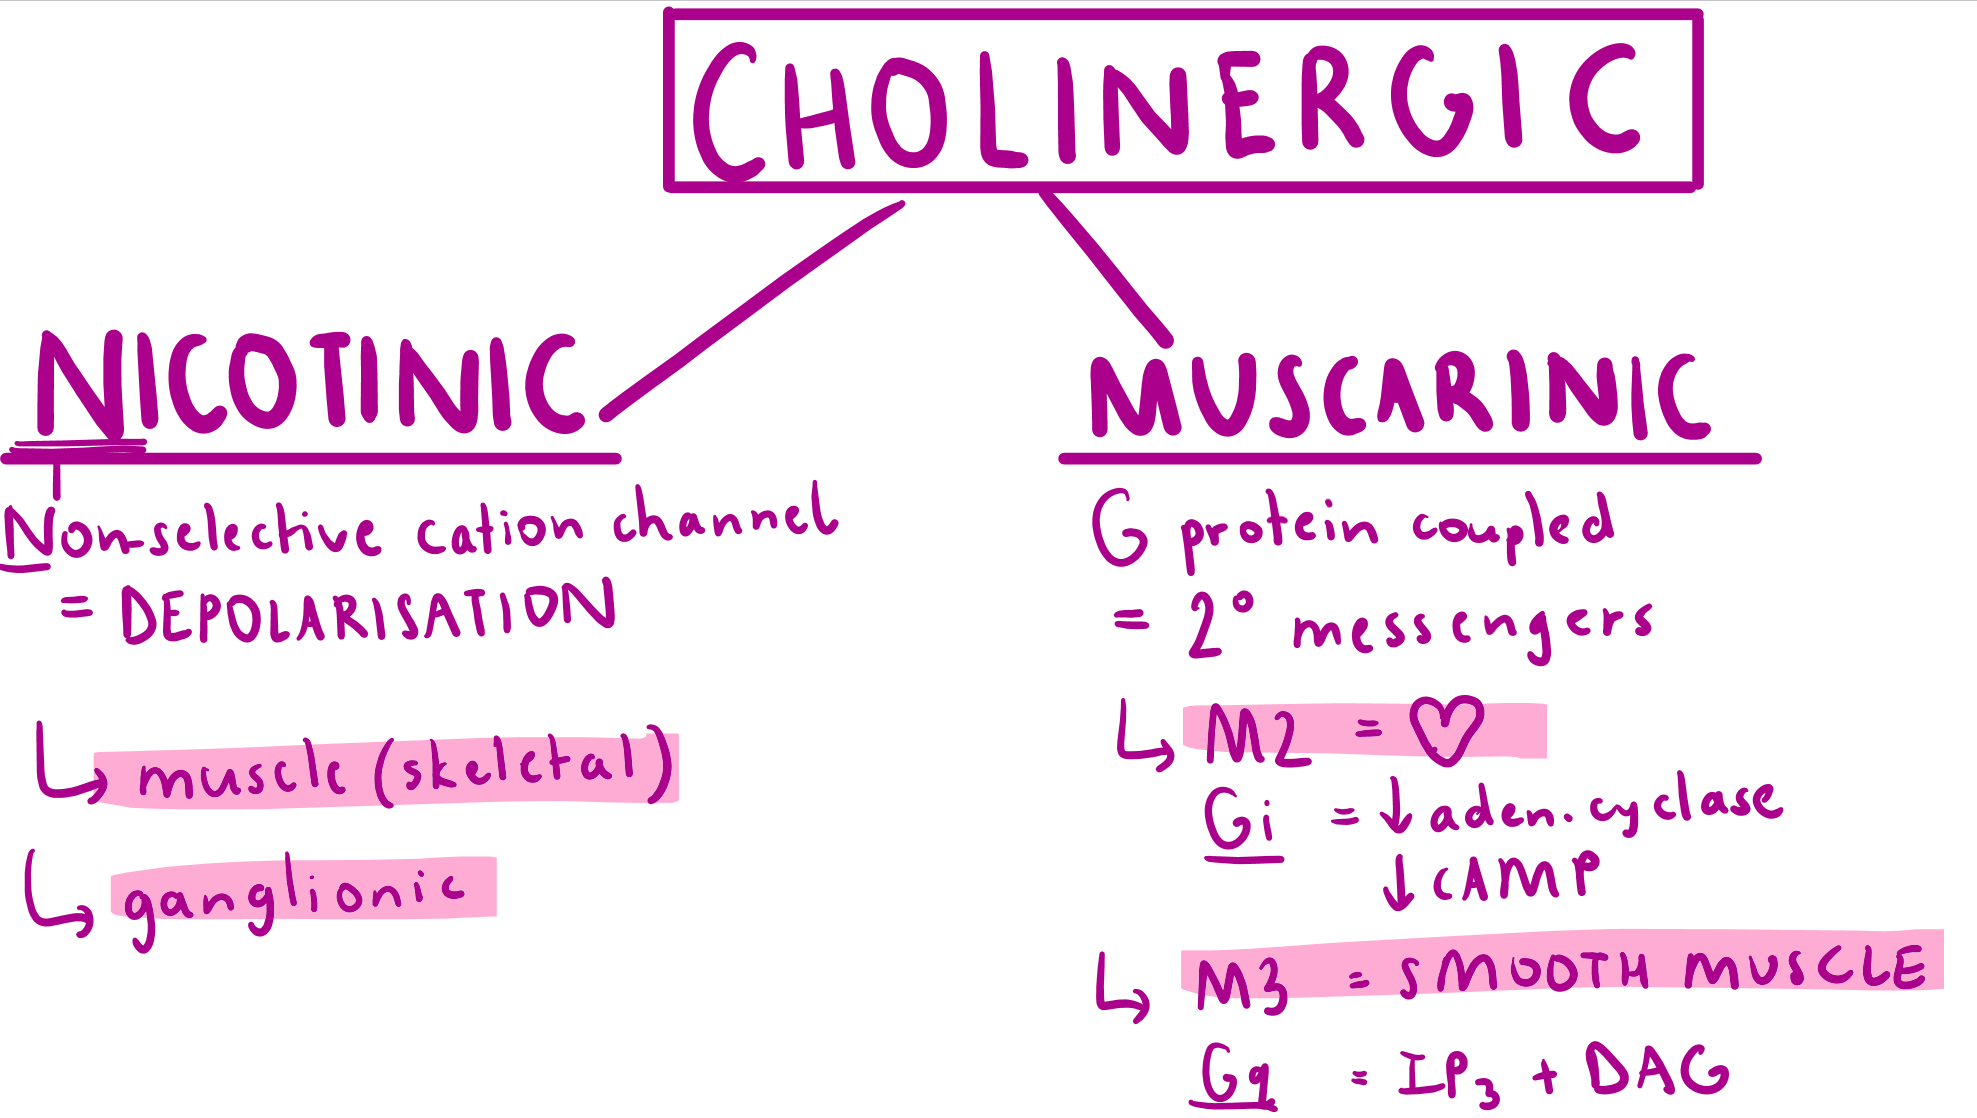 CHOLINERGIC
NICOTINIC
Non-selective cation channel
= DEPOLARISATION
↳ muscle (skeletal)
↳ ganglionic
MUSCARINIC
G protein coupled
= 2° messengers
↳ M2 = ♡
Gi = ↓ aden. cyclase
↓ cAMP
↳ M3 = SMOOTH MUSCLE
Gq = IP₃ + DAG